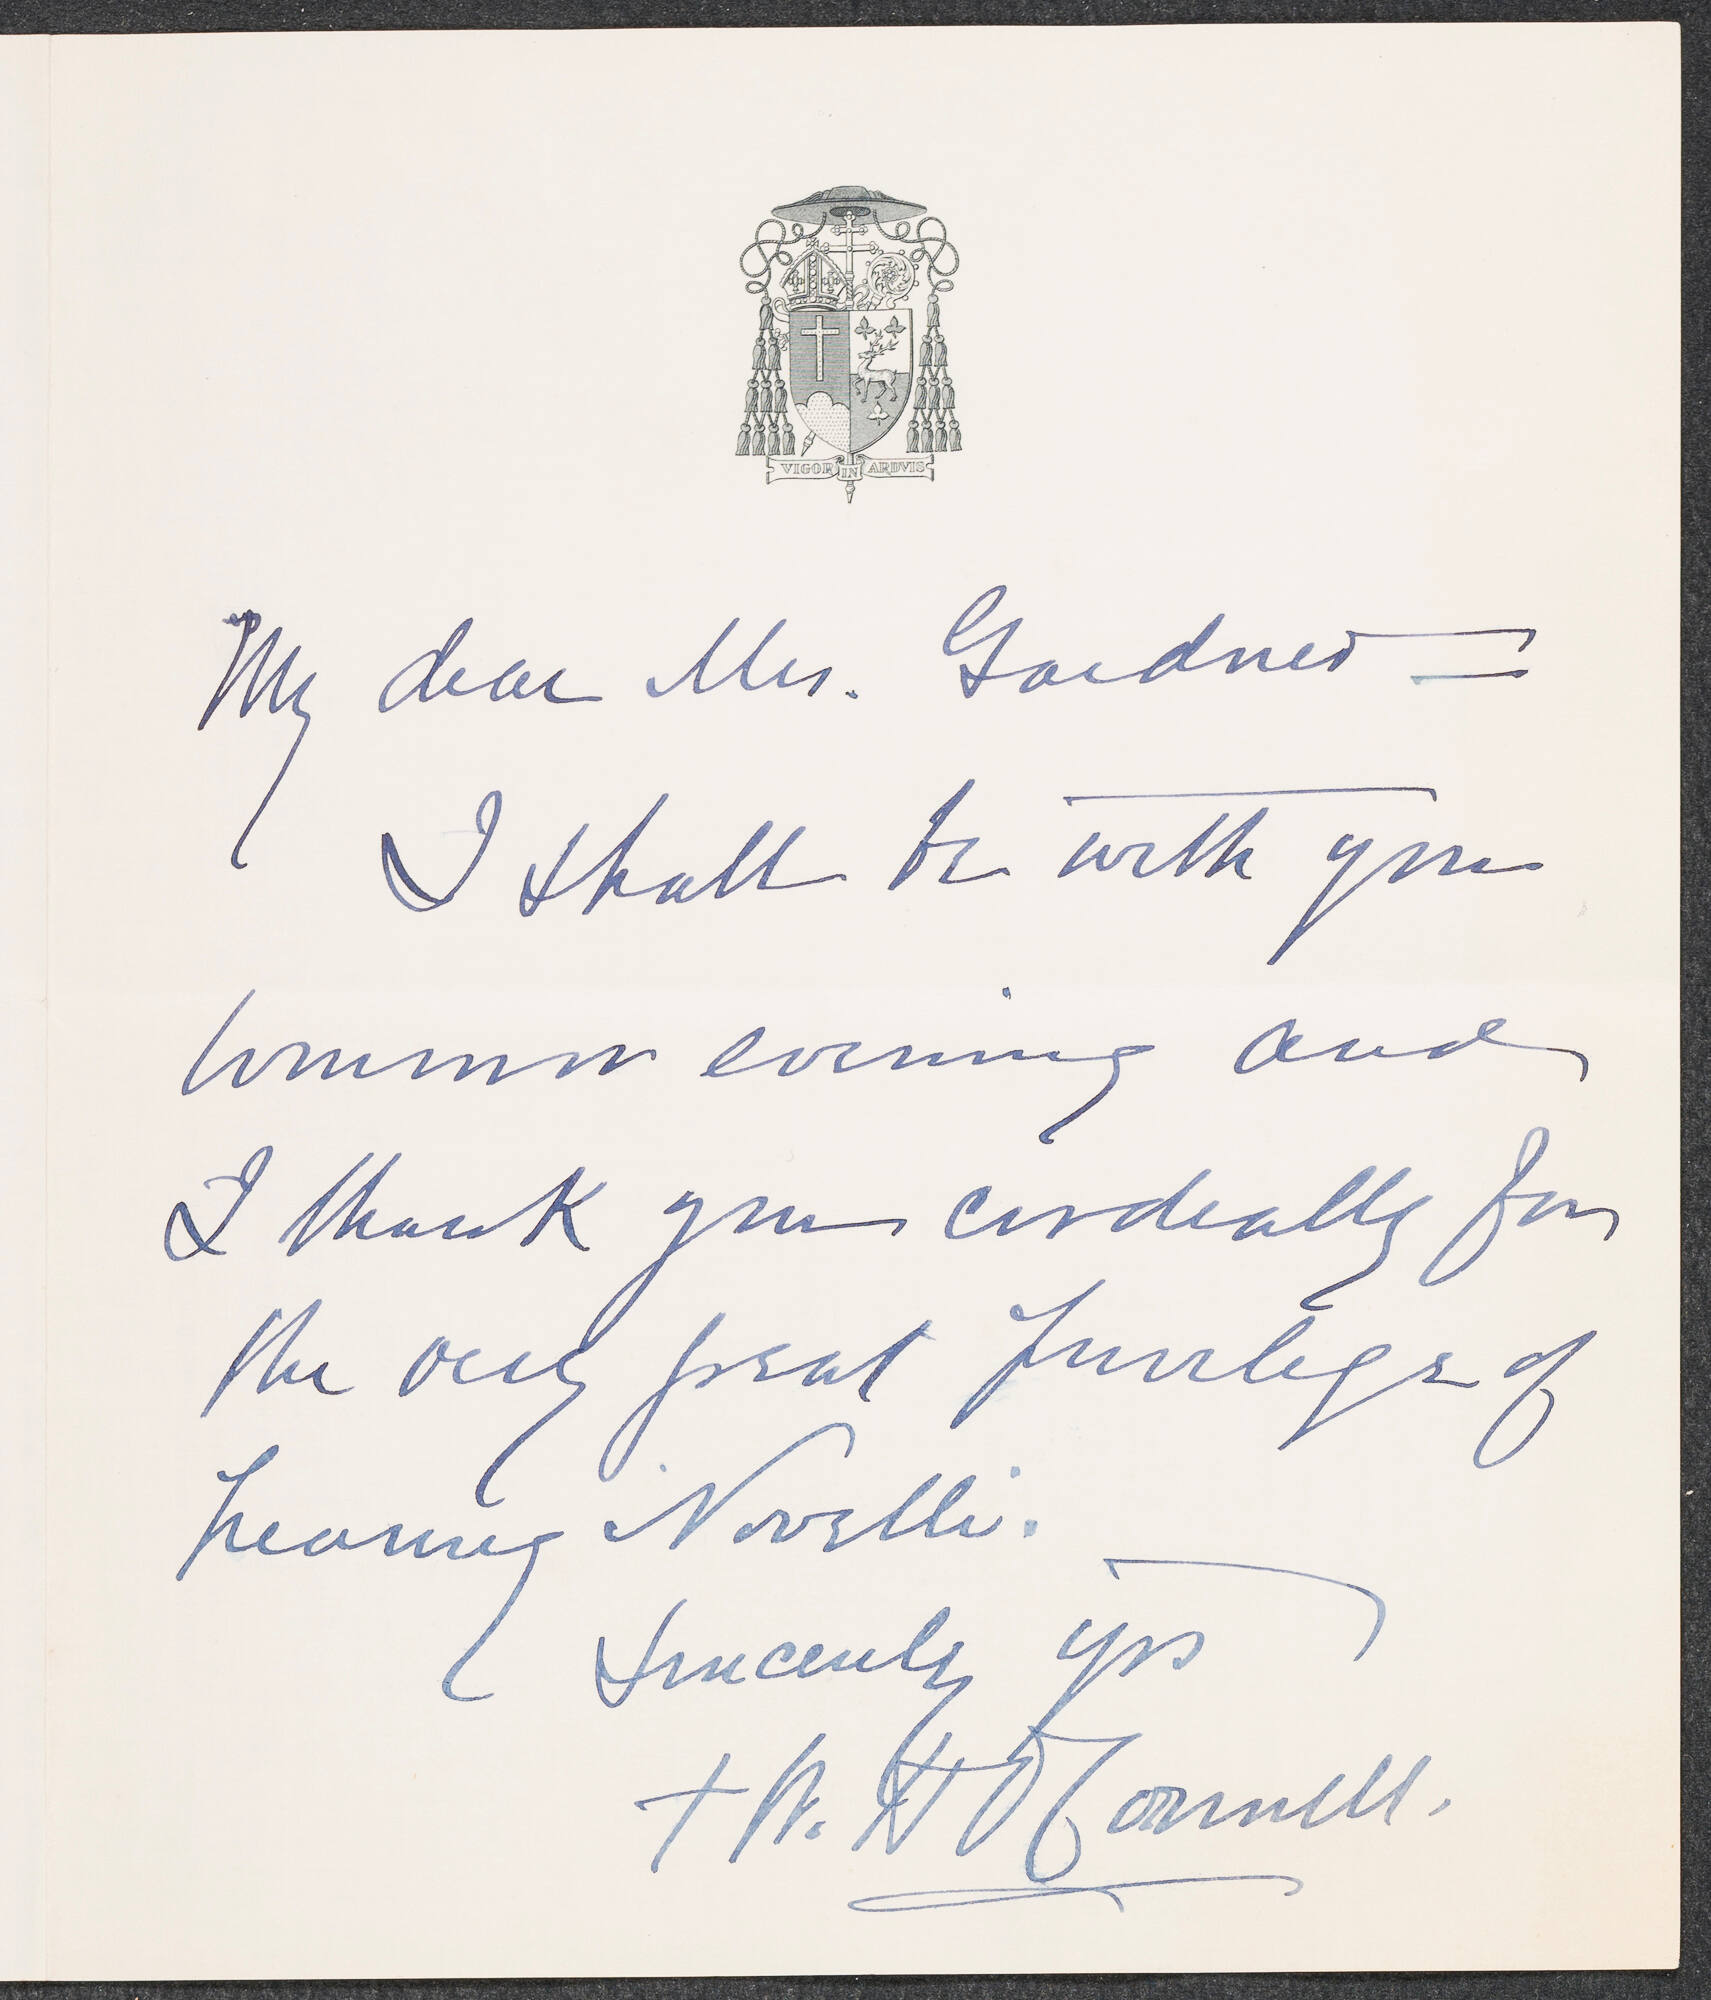 VIGOR IN ARDVIS
My dear Mrs. Gardner =
I shall be with you
tomorrow evening and
I thank you cordially for
the very great privilege of
hearing Novelli.
Sincerely yrs
+ W. H O'Connell.